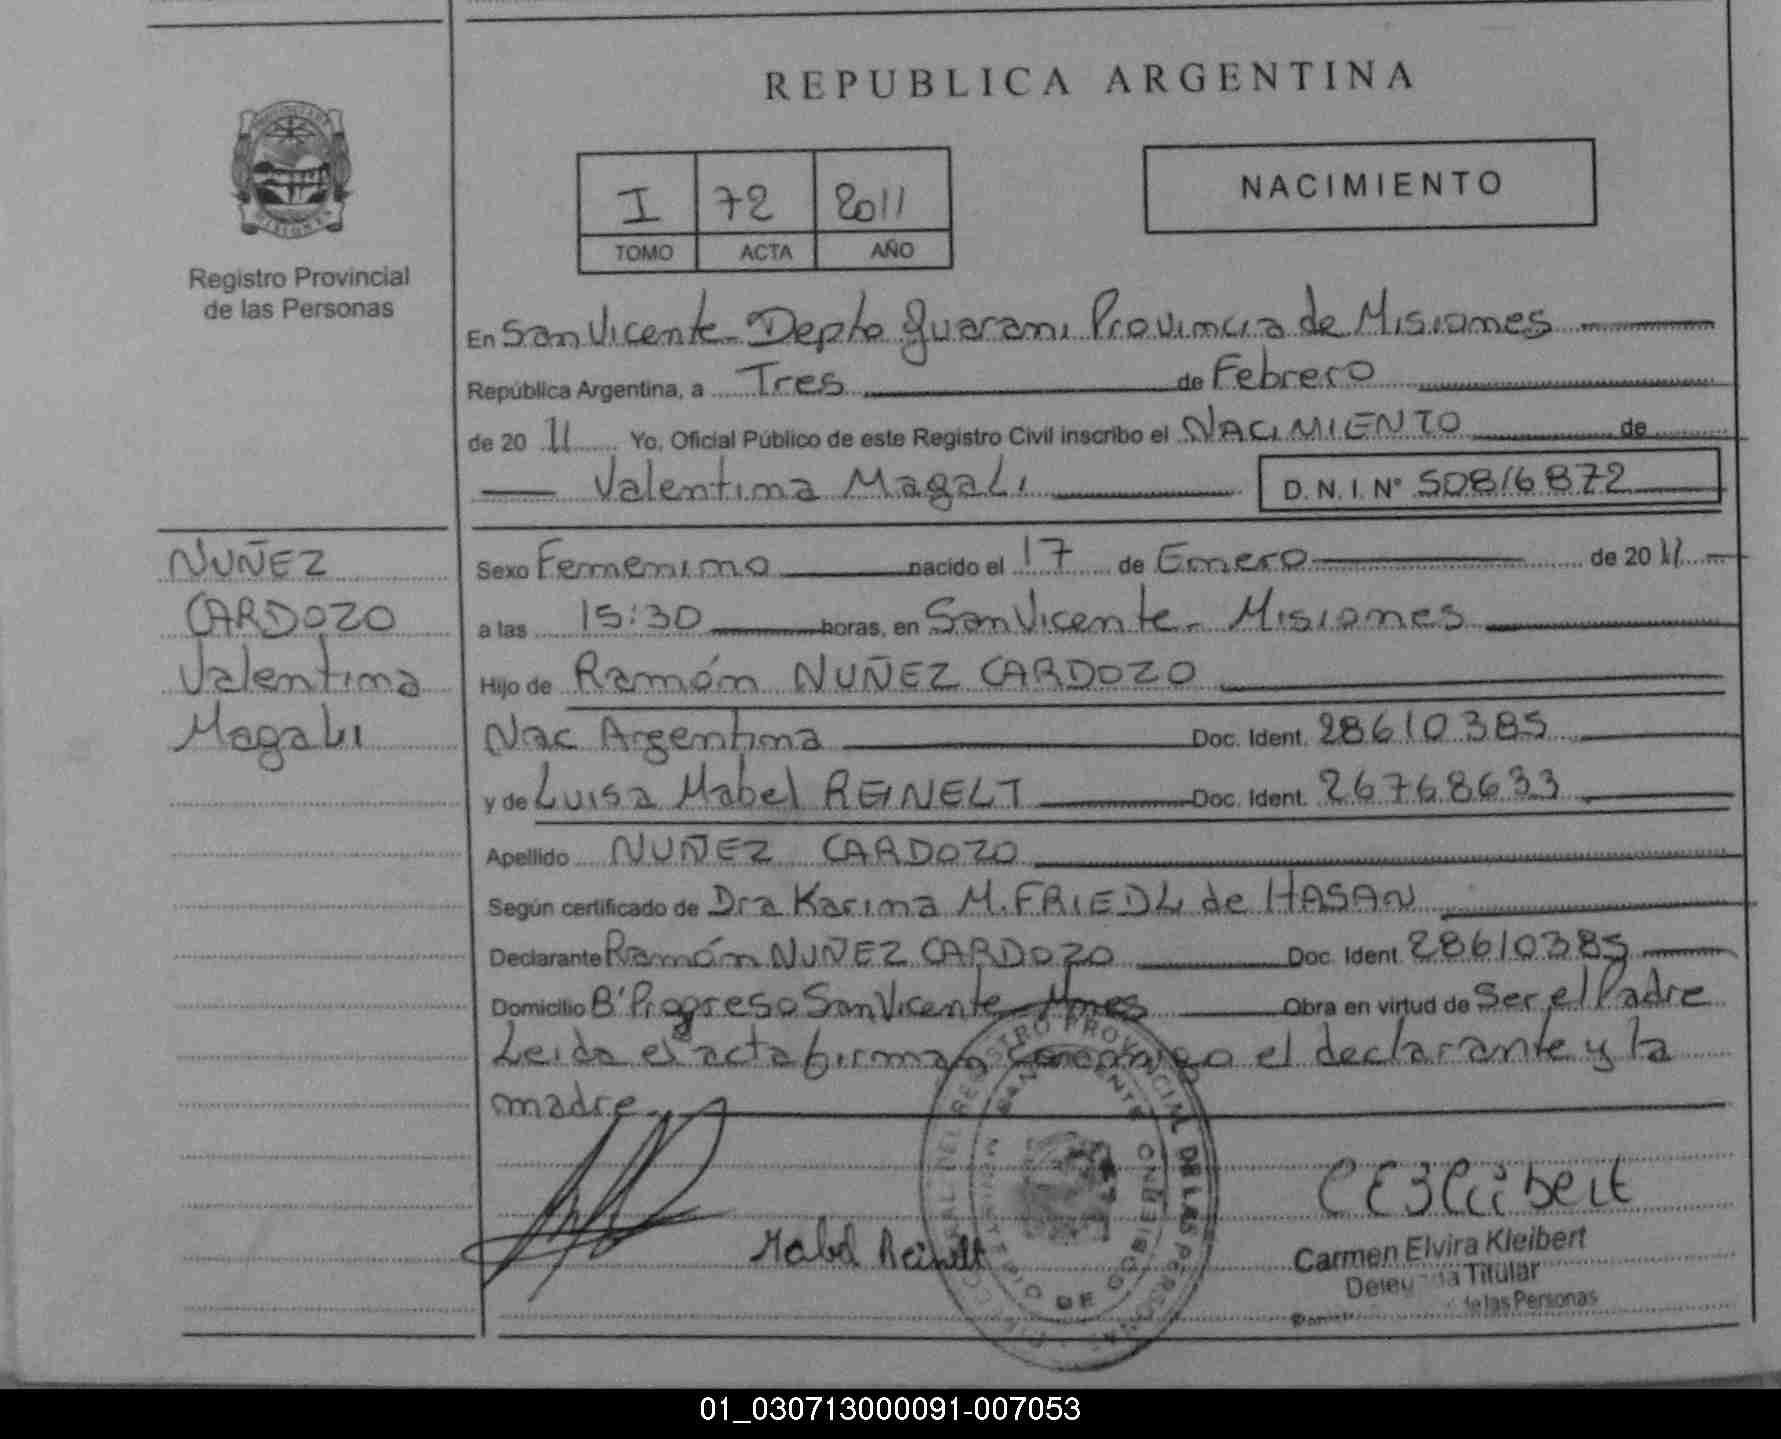 REPUBLICA ARGENTINA
Registro Provincial
de las Personas
I 72 2011
TOMO ACTA AÑO
NACIMIENTO
En San Vicente - Depto Guarani Provincia de Misiones
República Argentina, a Tres de Febrero
de 20 11 Yo, Oficial Público de este Registro Civil inscribo el NACIMIENTO de
Valentina Magali D.N.I. N° 50816872
NUÑEZ
CARDOZO
Valentina
Magali
Sexo Femenino nacido el 17 de Enero de 20 11
a las 15:30 horas, en San Vicente - Misiones
Hijo de Ramón NUÑEZ CARDOZO
Nac Argentina Doc. Ident. 28610385
y de Luisa Mabel REINELT Doc. Ident. 26768633
Apellido NUÑEZ CARDOZO
Según certificado de Dra Karina M. FRIEDL de HASAN
Declarante Ramón NUÑEZ CARDOZO Doc. Ident. 28610385
Domicilio B° Progreso San Vicente Mnes Obra en virtud de Ser el Padre
Leida el acta firman conmigo el declarante y la
madre
Mabel Reinelt
Carmen Elvira Kleibert
Titular
de las Personas
01_030713000091-007053